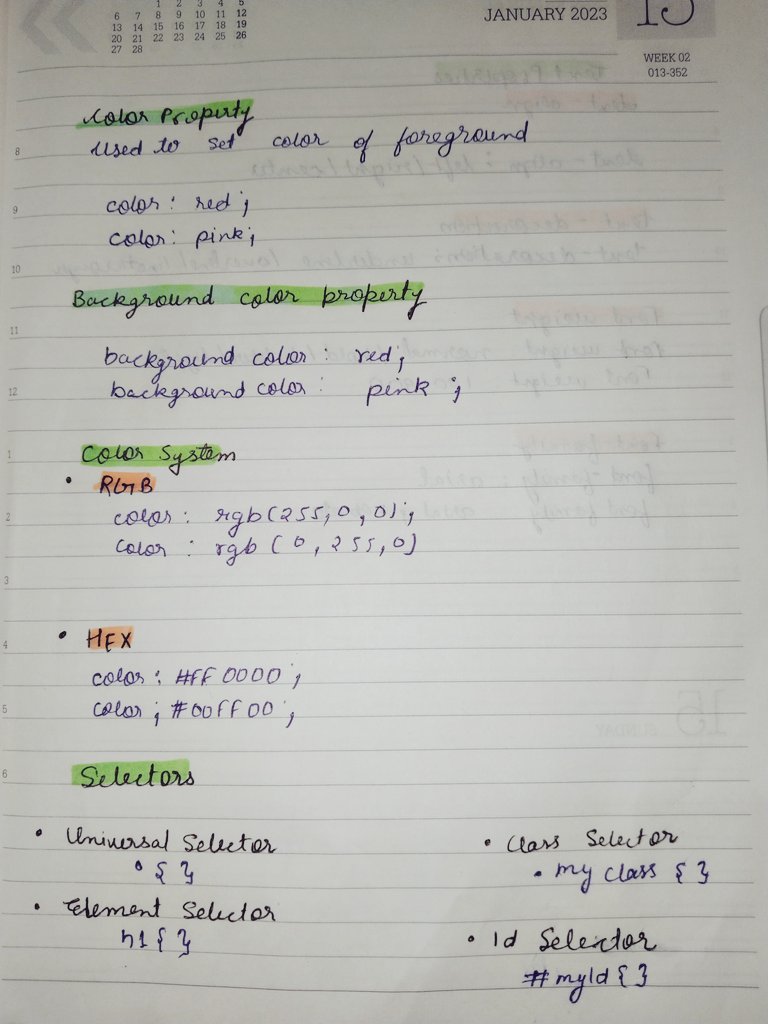 1 2 3 4 5
6 7 8 9 10 11 12
13 14 15 16 17 18 19
20 21 22 23 24 25 26
27 28
JANUARY 2023
WEEK 02
013-352
Color Property
8
Used to set color of foreground
9
color: red;
color: pink;
10
Background color property
11
background color: red;
12
background color: pink;
1
Color System
• RGB
2
color: rgb(255,0,0);
color: rgb(0,255,0)
3
4
• HEX
color: #FF0000;
5
color; #00FF00;
6
Selectors
• Universal Selector
• { }
• Element Selector
h1{ }
• Class Selector
• my class { }
• Id Selector
#myId { }